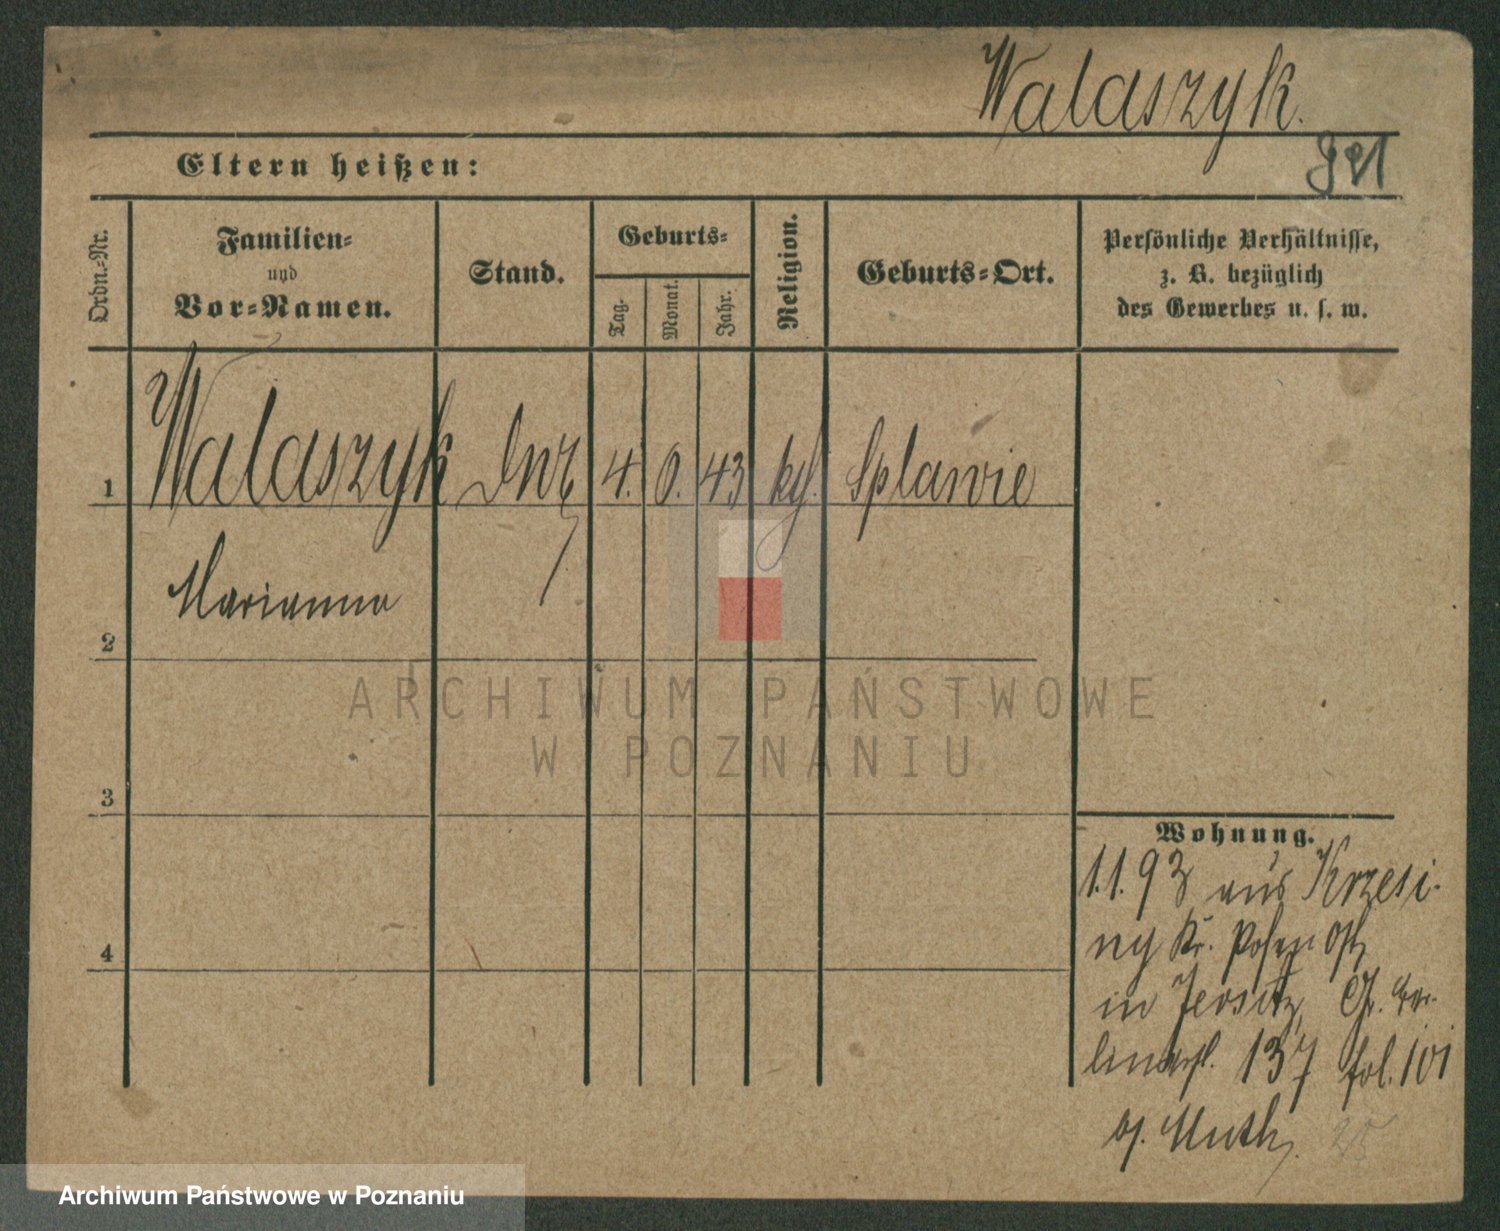 Walaszyk.
Eltern heißen:
Ordn.-Nr.
Familien-
und
Vor-Namen.
Stand.
Geburts-
Tag.
Monat.
Jahr.
Religion.
Geburts-Ort.
Persönliche Verhältnisse,
z. B. bezüglich
des Gewerbes u. s. w.
1 Walaszyk 4. 0. 43 Splawie
Marianna
2
ARCHIWUM PAŃSTWOWE
W POZNANIU
3
4
Wohnung.
1.1.93 aus Krzesi-
ny Kr. Posen Ost
in Jersitz, Gr. Ber-
linerst. 137 fol. 101
b/. Muth.
Archiwum Państwowe w Poznaniu